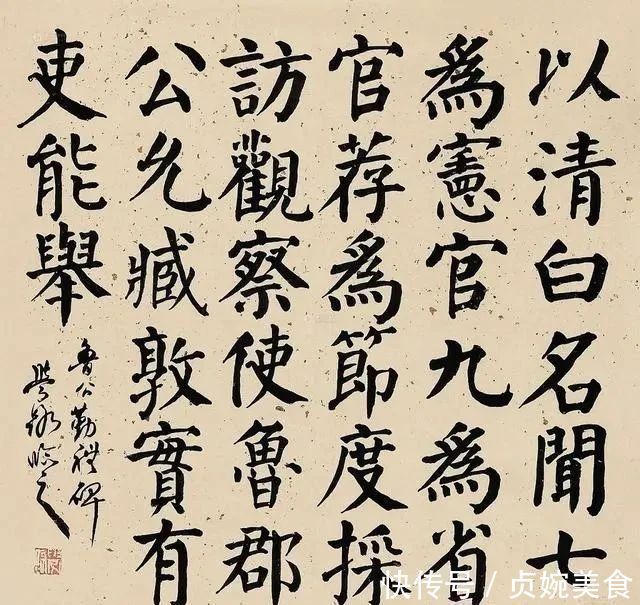 以清白名聞七
爲憲官九爲省
官荐爲節度採
訪觀察使魯郡
公允臧敦實有
吏能舉
魯公勤礼碑
臨之
快传号 / 贞婉美食